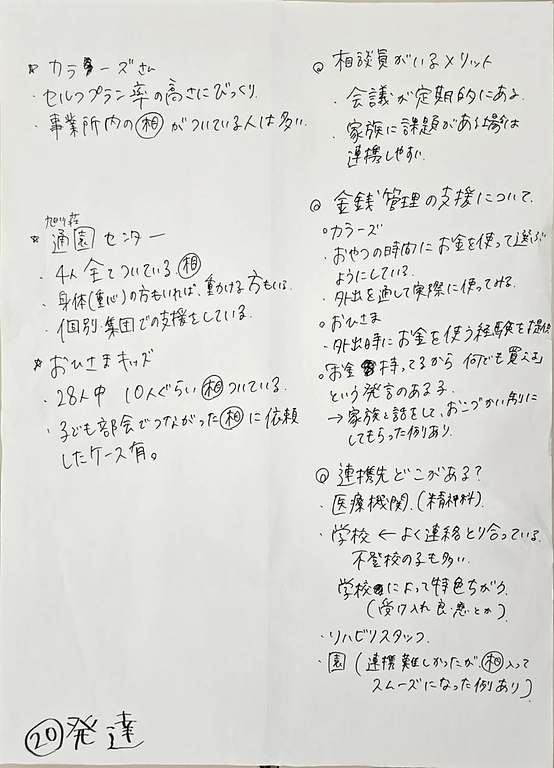 ☆ カラーズさん
・セルフプラン率の高さにびっくり.
・事業所内の㊟相がついている人は多い.
旭川荘
☆ 通園センター
・4人全てついている.相
・身体(重心)の方もいれば、動かける方もいる.
・個別・集団での支援をしている.
☆ おひさまキッズ
・28人中 10人ぐらい相ついている.
・子ども部会でつながった相に依頼
したケース有。
⑳ 発達
◎ 相談員がいるメリット
・会議が定期的にある.
・家族に課題がある場合は
連携しやすい.
◎ 金銭管理の支援について.
○カラーズ
・おやつの時間にお金を使って選ぶ
ようにしている.
・外出を通して実際に使ってみる.
○おひさま
・外出時にお金を使う経験を提供
「お金持ってるから何でも買える」
という発言のある子.
→ 家族と話をして、おこづかい制に
してもらった例あり.
◎ 連携先どこがある?
・医療機関.(精神科).
・学校 ← よく連絡とり合っている.
不登校の子も多い.
学校によって特色ちがう.
(受け入れ良・悪とか)
・リハビリスタッフ.
・園 (連携難しかったが、相入って
スムーズになった例あり)